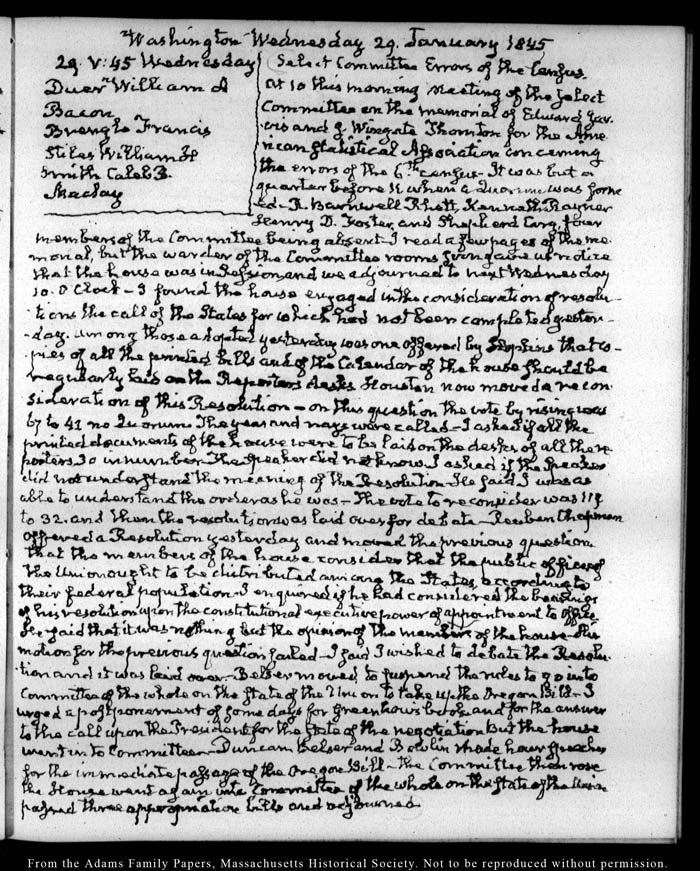 Washington Wednesday 29. January 1845
29. V:45 Wednesday
Duer William A
Bacon
Brengle Francis
Stiles William H
Smith Caleb B.
Maclay
Select Committee Errors of the Census.
At 10 this morning meeting of the Select
Committee on the memorial of Edward Jar-
vis and J. Wingate Thornton for the Ame-
rican Statistical Association concerning
the errors of the 6th census. It was but a
quarter before 11 when a quorum was form-
ed. R. Barnwell Rhett, Kenneth Rayner
Henry D. Foster, and Shepherd Cary, four
members of the Committee being absent. I read a few pages of the me-
morial, but the warder of the Committee rooms giving us notice
that the house was in Session, and we adjourned to next Wednesday
10. O'Clock. I found the house engaged in the consideration of resolu-
tions the call of the States for which had not been completed yester-
day. Among those adopted yesterday was one offered by Hopkins that co-
pies of all the printed bills and of the Calendar of the house should be
regularly laid on the Reporters desks. Houston now moved a recon-
sideration of this Resolution - on this question the vote by rising was
67 to 41 no Quorum. The yeas and nays were called. I asked if all the
printed documents of the house were to be laid on the desks of all the re-
porters 30 in number. The Speaker did not know. I asked if the Speaker
did not understand the meaning of the Resolution. He said I was as
able to understand the order as he was. The vote to reconsider was 119
to 32. and then the resolution was laid over for debate. Reuben Chapman
offered a Resolution yesterday and moved the previous question
that the members of the house consider that the public offices of
the Union ought to be distributed among the States, according to
their federal population. I enquired if he had considered the bearings
of his resolution upon the constitutional executive power of appointment to office
He said that it was nothing but the opinion of the members of the house. His
motion for the previous question failed. I said I wished to debate the Resolu-
tion and it was laid over. Belser moved to suspend the rules to go into
Committee of the whole on the State of the Union to take up the Oregon Bill. I
urged a postponement of some days for Greenhow's book and for the answer
to the call upon the President for the state of the negotiation But the house
went into Committee. Duncan Belser and Bowlin made hour speeches
for the immediate passage of the Oregon Bill. The Committee then rose
the House went again into Committee of the whole on the State of the Union
passed three appropriation bills and adjourned.
From the Adams Family Papers, Massachusetts Historical Society. Not to be reproduced without permission.